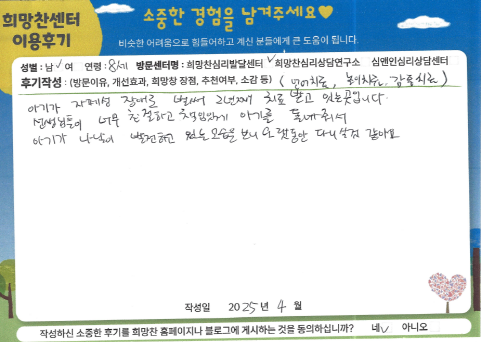 희망찬센터
이용후기
소중한 경험을 남겨주세요♥
비슷한 어려움으로 힘들어하고 계신 분들에게 큰 도움이 됩니다.
성별 : 남 ✓ 여 연령 : 8세 방문센터명 : 희망찬심리발달센터 ✓ 희망찬심리상담연구소 심앤인심리상담센터
후기작성 : (방문이유, 개선효과, 희망찬 장점, 추천여부, 소감 등) (언어치료, 놀이치료, 감통치료)
아기가 자폐성 장애로 벌써 2년째 치료 받고 있는곳입니다.
선생님들이 너무 친절하고 책임감있게 아기를 돌봐주셔
아기가 나날이 발전하고 있는 모습을 보니 오랫동안 다니살것 같아요
작성일 2025년 4 월
작성하신 소중한 후기를 희망찬 홈페이지나 블로그에 게시하는 것을 동의하십니까? 네 ✓ 아니오